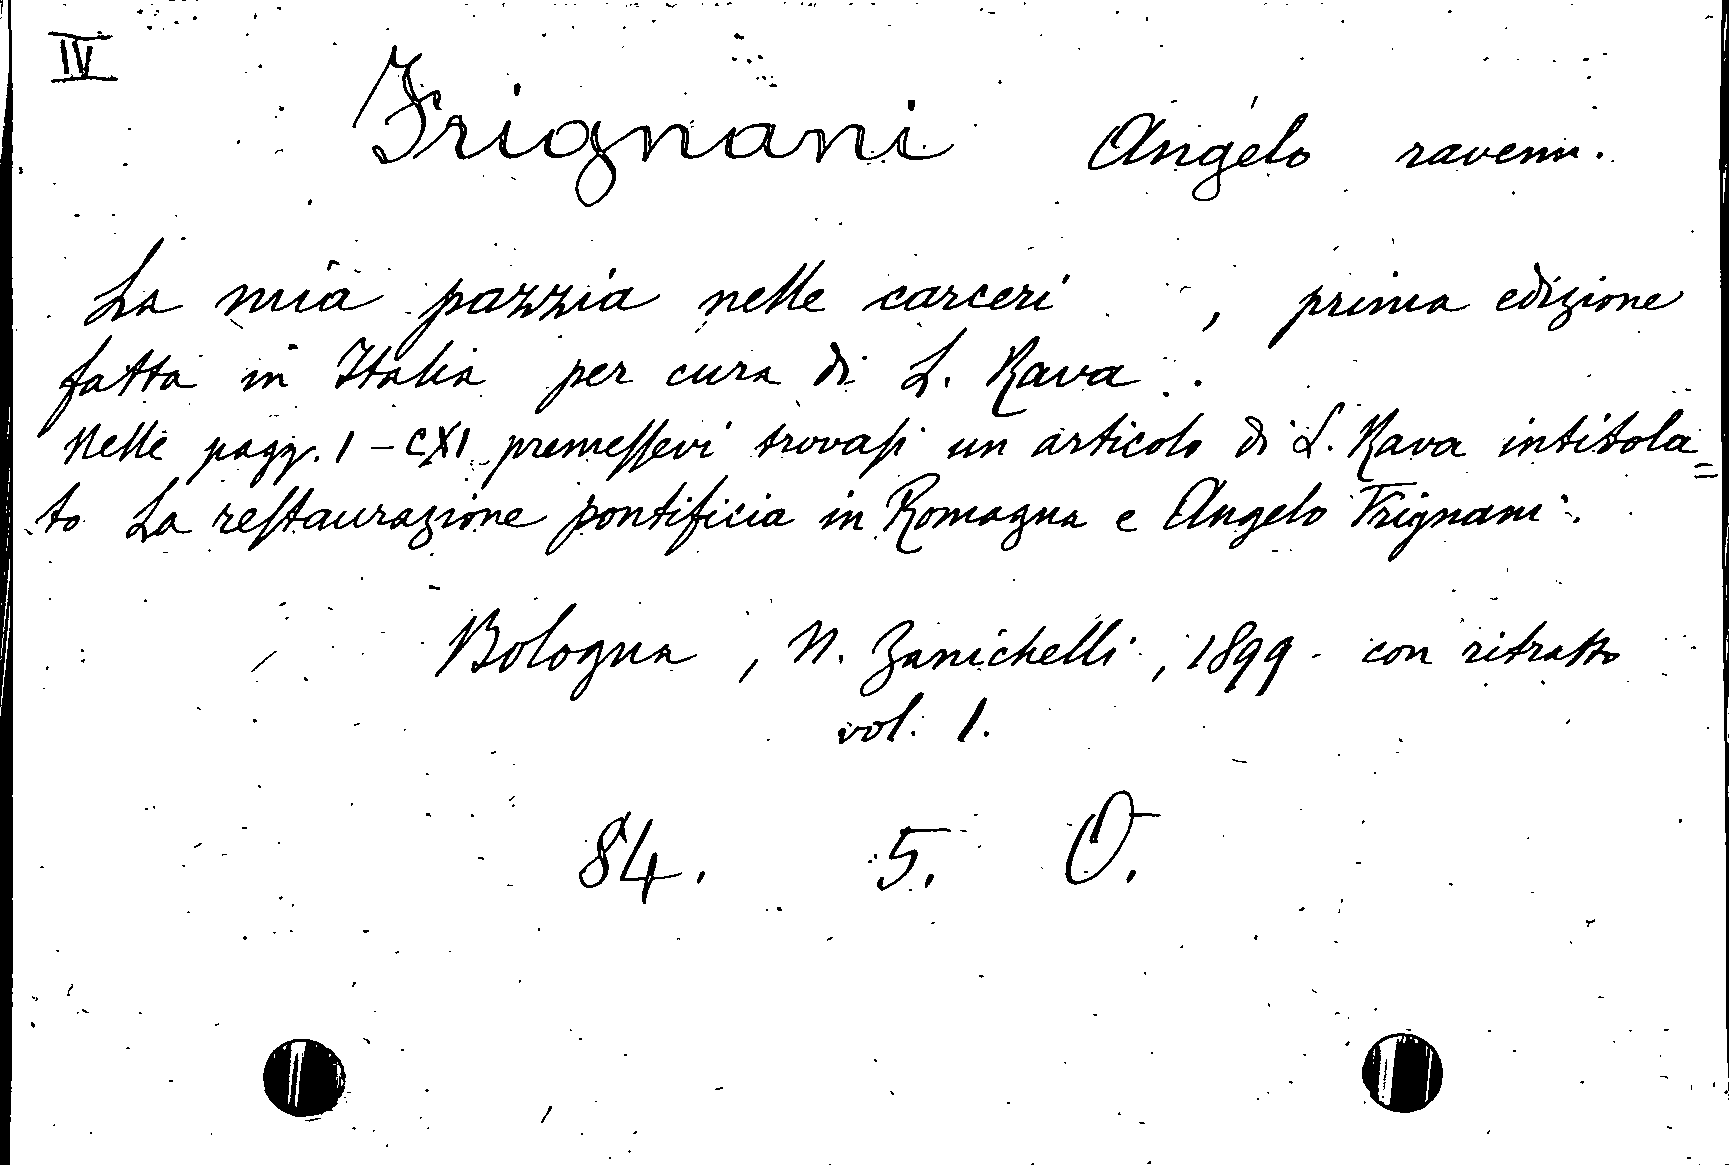 IV
Frignani Angelo ravenn.
La mia pazzia nelle carceri , prima edizione
fatta in Italia per cura di L. Rava.
Nelle pagg. I-CXI premessevi trovasi un articolo di L. Rava intitola=
to La restaurazione pontificia in Romagna e Angelo Frignani.
Bologna, N. Zanichelli, 1899 con ritratto
vol. 1.
84. 5. O.